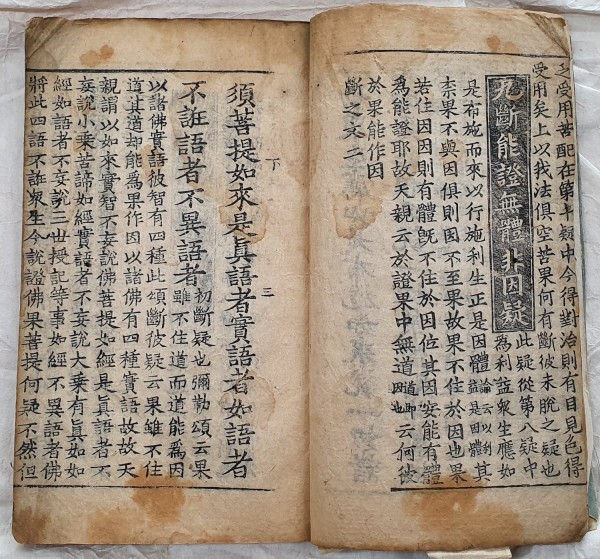 乏受用苦配在第八疑中今得對治則有目見色得
受用矣上以我法俱空苦果何有斷彼未脫之疑也
九斷能證無體非因疑
此疑從第八疑中
爲利益眾生應如
是布施而來以行施利生正是因體
其
柰果不與因俱則因不至果故果不住於因也果
若住因因則有體旣不住於因位其因安能有體
爲能證耶故天親云於證果中無道道即因也云何彼
於果能作因
斷之文二
下
三
須菩提如來是眞語者實語者如語者
不誑語者不異語者
初斷疑也彌勒頌云果
雖不住道而道能爲因
以諸佛實語彼智有四種此頌斷彼疑云果雖不住
道其道却能爲果作因以諸佛有四種實語故故天
親謂以如實智不妄說佛菩提如經是眞語者不
妄說小乘苦諦如經實語者不妄說大乘有眞如如
經如語者不妄說三世授記等事如經不異語者佛
將此四語不誑眾生今說證佛果菩提何疑不然但